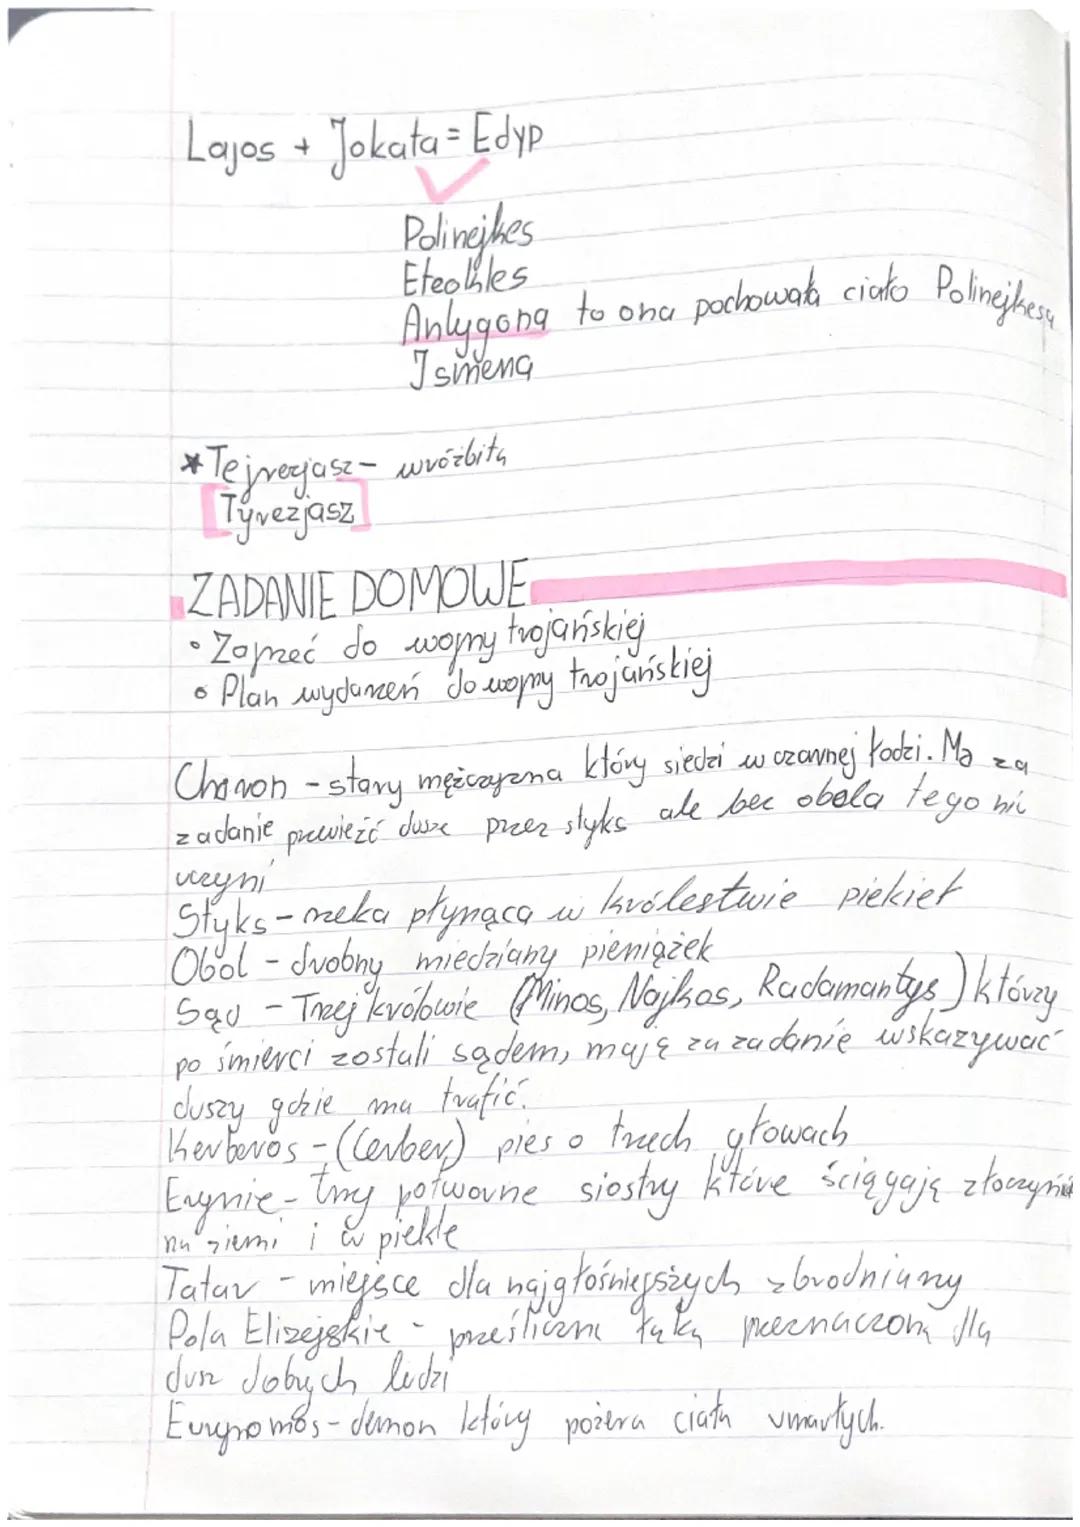 Lajos + Jokata = Edyp
Polinejkes
Eteokles
Antygona to ona pochowała ciało Polinejkesa
Ismena
*Tejrezjasz - wróżbita
[Tyrezjasz]
ZADANIE DOMOWE
• Zajrzeć do wojny trojańskiej
• Plan wydarzeń do wojny trojańskiej
Charon - stary mężczyzna który siedzi w czarnej łodzi. Ma za
zadanie przewieźć dusze przez styks ale bez obola tego nie
uczyni
Styks - rzeka płynąca w królestwie piekieł
Obol - drobny miedziany pieniążek
Sąd - Trzej królowie (Minos, Najkos, Radamantys) którzy
po śmierci zostali sądem, mają za zadanie wskazywać
duszy gdzie ma trafić.
Kerberos - (Cerber) pies o trzech głowach
Erynie - trzy potworne siostry które ścigają
na ziemi i w piekle
Tatar - miejsce dla najgłośniejszych zbrodniarzy
Pola Elizejskie - prześliczna łąka przeznaczona dla
dusz dobrych ludzi
Eurynomos - demon który pożera ciała umarłych.